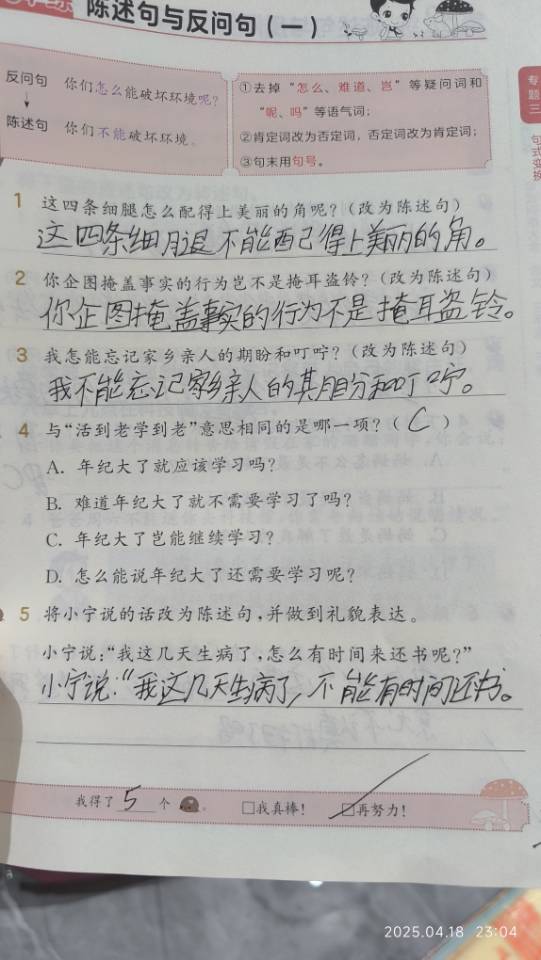 陈述句与反问句（一）
反问句 你们怎么能破坏环境呢？
陈述句 你们不能破坏环境。
①去掉“怎么、难道、岂”等疑问词和
“呢、吗”等语气词；
②肯定词改为否定词，否定词改为肯定词；
③句末用句号。
专题三
句式变换
1 这四条细腿怎么配得上美丽的角呢？（改为陈述句）
这四条细腿不能配得上美丽的角。
2 你企图掩盖事实的行为岂不是掩耳盗铃？（改为陈述句）
你企图掩盖事实的行为不是掩耳盗铃。
3 我怎能忘记家乡亲人的期盼和叮咛？（改为陈述句）
我不能忘记家乡亲人的期盼和叮咛。
4 与“活到老学到老”意思相同的是哪一项？（C）
A. 年纪大了就应该学习吗？
B. 难道年纪大了就不需要学习了吗？
C. 年纪大了岂能继续学习？
D. 怎么能说年纪大了还需要学习呢？
5 将小宁说的话改为陈述句，并做到礼貌表达。
小宁说：“我这几天生病了，怎么有时间来还书呢？”
小宁说：“我这几天生病了，不能有时间还书。
我得了 5 个 。 □我真棒！ □再努力！
2025.04.18 23:04